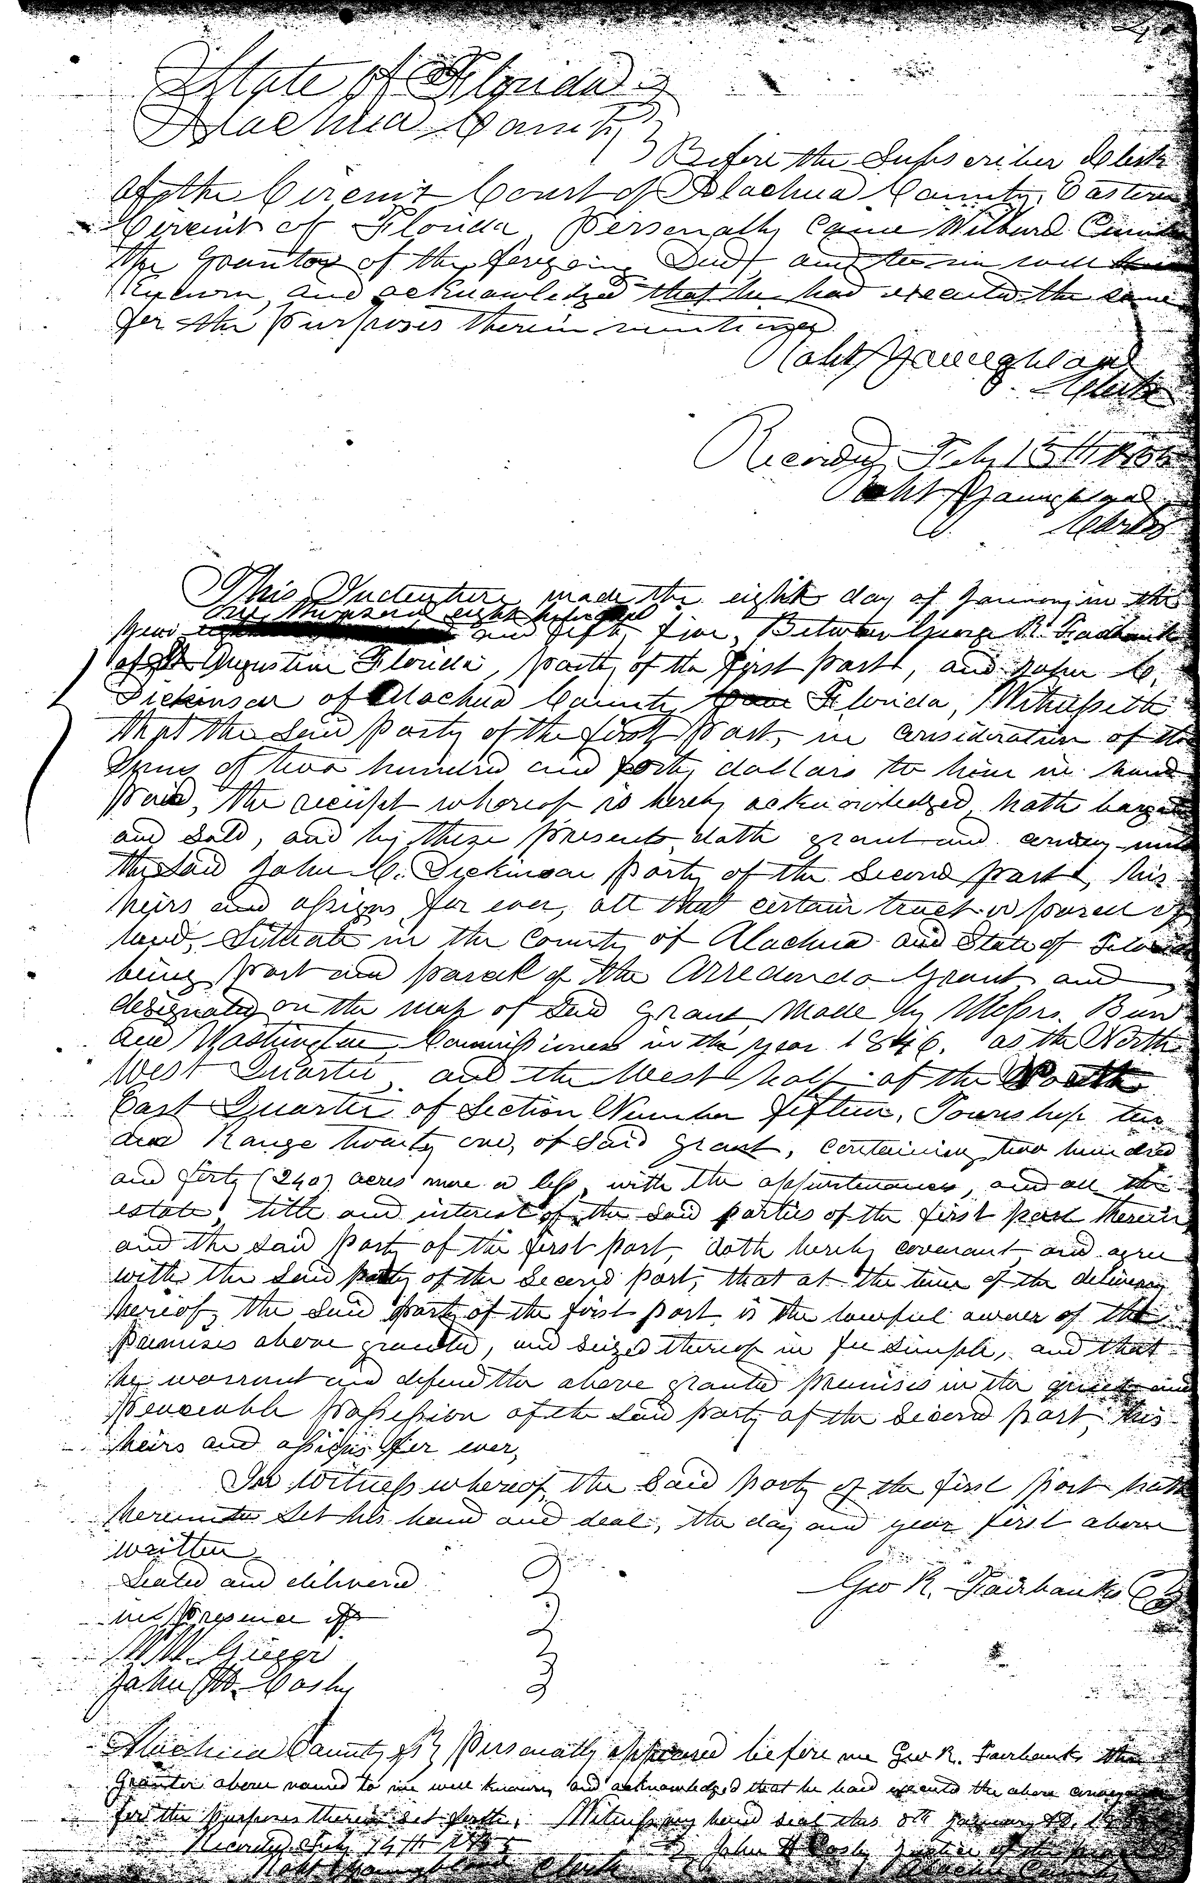 State of Florida
Alachua County
Before the Subscriber Clerk
of the Circuit Court of Alachua County, Eastern
Circuit of Florida, Personally came Wilburd
the grantor of the foregoing Deed, and to me well
Known, and acknowledged that he had executed the same
for the purposes therein mentioned
Robt Youngblood
Clerk
Recorded Feby 15th 1855
Robt Youngblood
Clerk
This Indenture made the eight day of January in the
one thousand eight hundred
year and fifty five, Between George R. Fairbanks
of St Augustine Florida, party of the first part, and John C.
Dickinson of Alachua County Florida, Witnesseth
that the said party of the first part, in consideration of the
sum of two hundred and forty dollars to him in hand
paid, the receipt whereof is hereby acknowledged, hath bargained
and sold, and by these presents doth grant and convey unto
the said John C. Dickinson party of the second part, his
heirs and assigns for ever, all that certain tract or parcel of
land, situate in the County of Alachua and State of Florida
being part and parcel of the Arredondo Grant, and
designated on the map of said grant, made by Messrs. Burr
and Washington, Commissioners in the year 1846. as the North
West Quarter, and the West half of the North
East Quarter of Section Number fifteen, Township ten
and Range twenty one, of said grant, containing two hundred
and forty (240) acres more or less, with the appurtenances, and all the
estate, title and interest of the said parties of the first part therein
and the said party of the first part, doth hereby covenant and agree
with the said party of the second part, that at the time of the delivery
hereof, the said party of the first part is the lawful owner of the
premises above granted, and seized thereof in fee simple, and that
he warrant and defend the above granted premises in the quiet and
peaceable possession of the said party of the second part, his
heirs and assigns for ever,
In Witness whereof, the said party of the first part hath
hereunto set his hand and seal, the day and year first above
written
Sealed and delivered
in presence of
Geo R. Fairbanks
John H. Cosby
Alachua County Personally appeared before me Geo R. Fairbanks the
Grantor above named to me well known and acknowledged that he had executed the above conveyance
for the purposes therein set forth. Witness my hand seal this 8th January AD.
Recorded Feby 14th 1855
John H Cosby Justice of the peace
Robt Youngblood Clerk
Alachua County